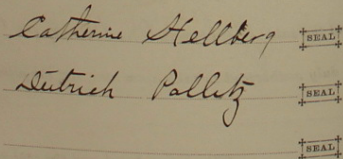 Catherine Hellberg SEAL
Deitrich Palletz SEAL
SEAL